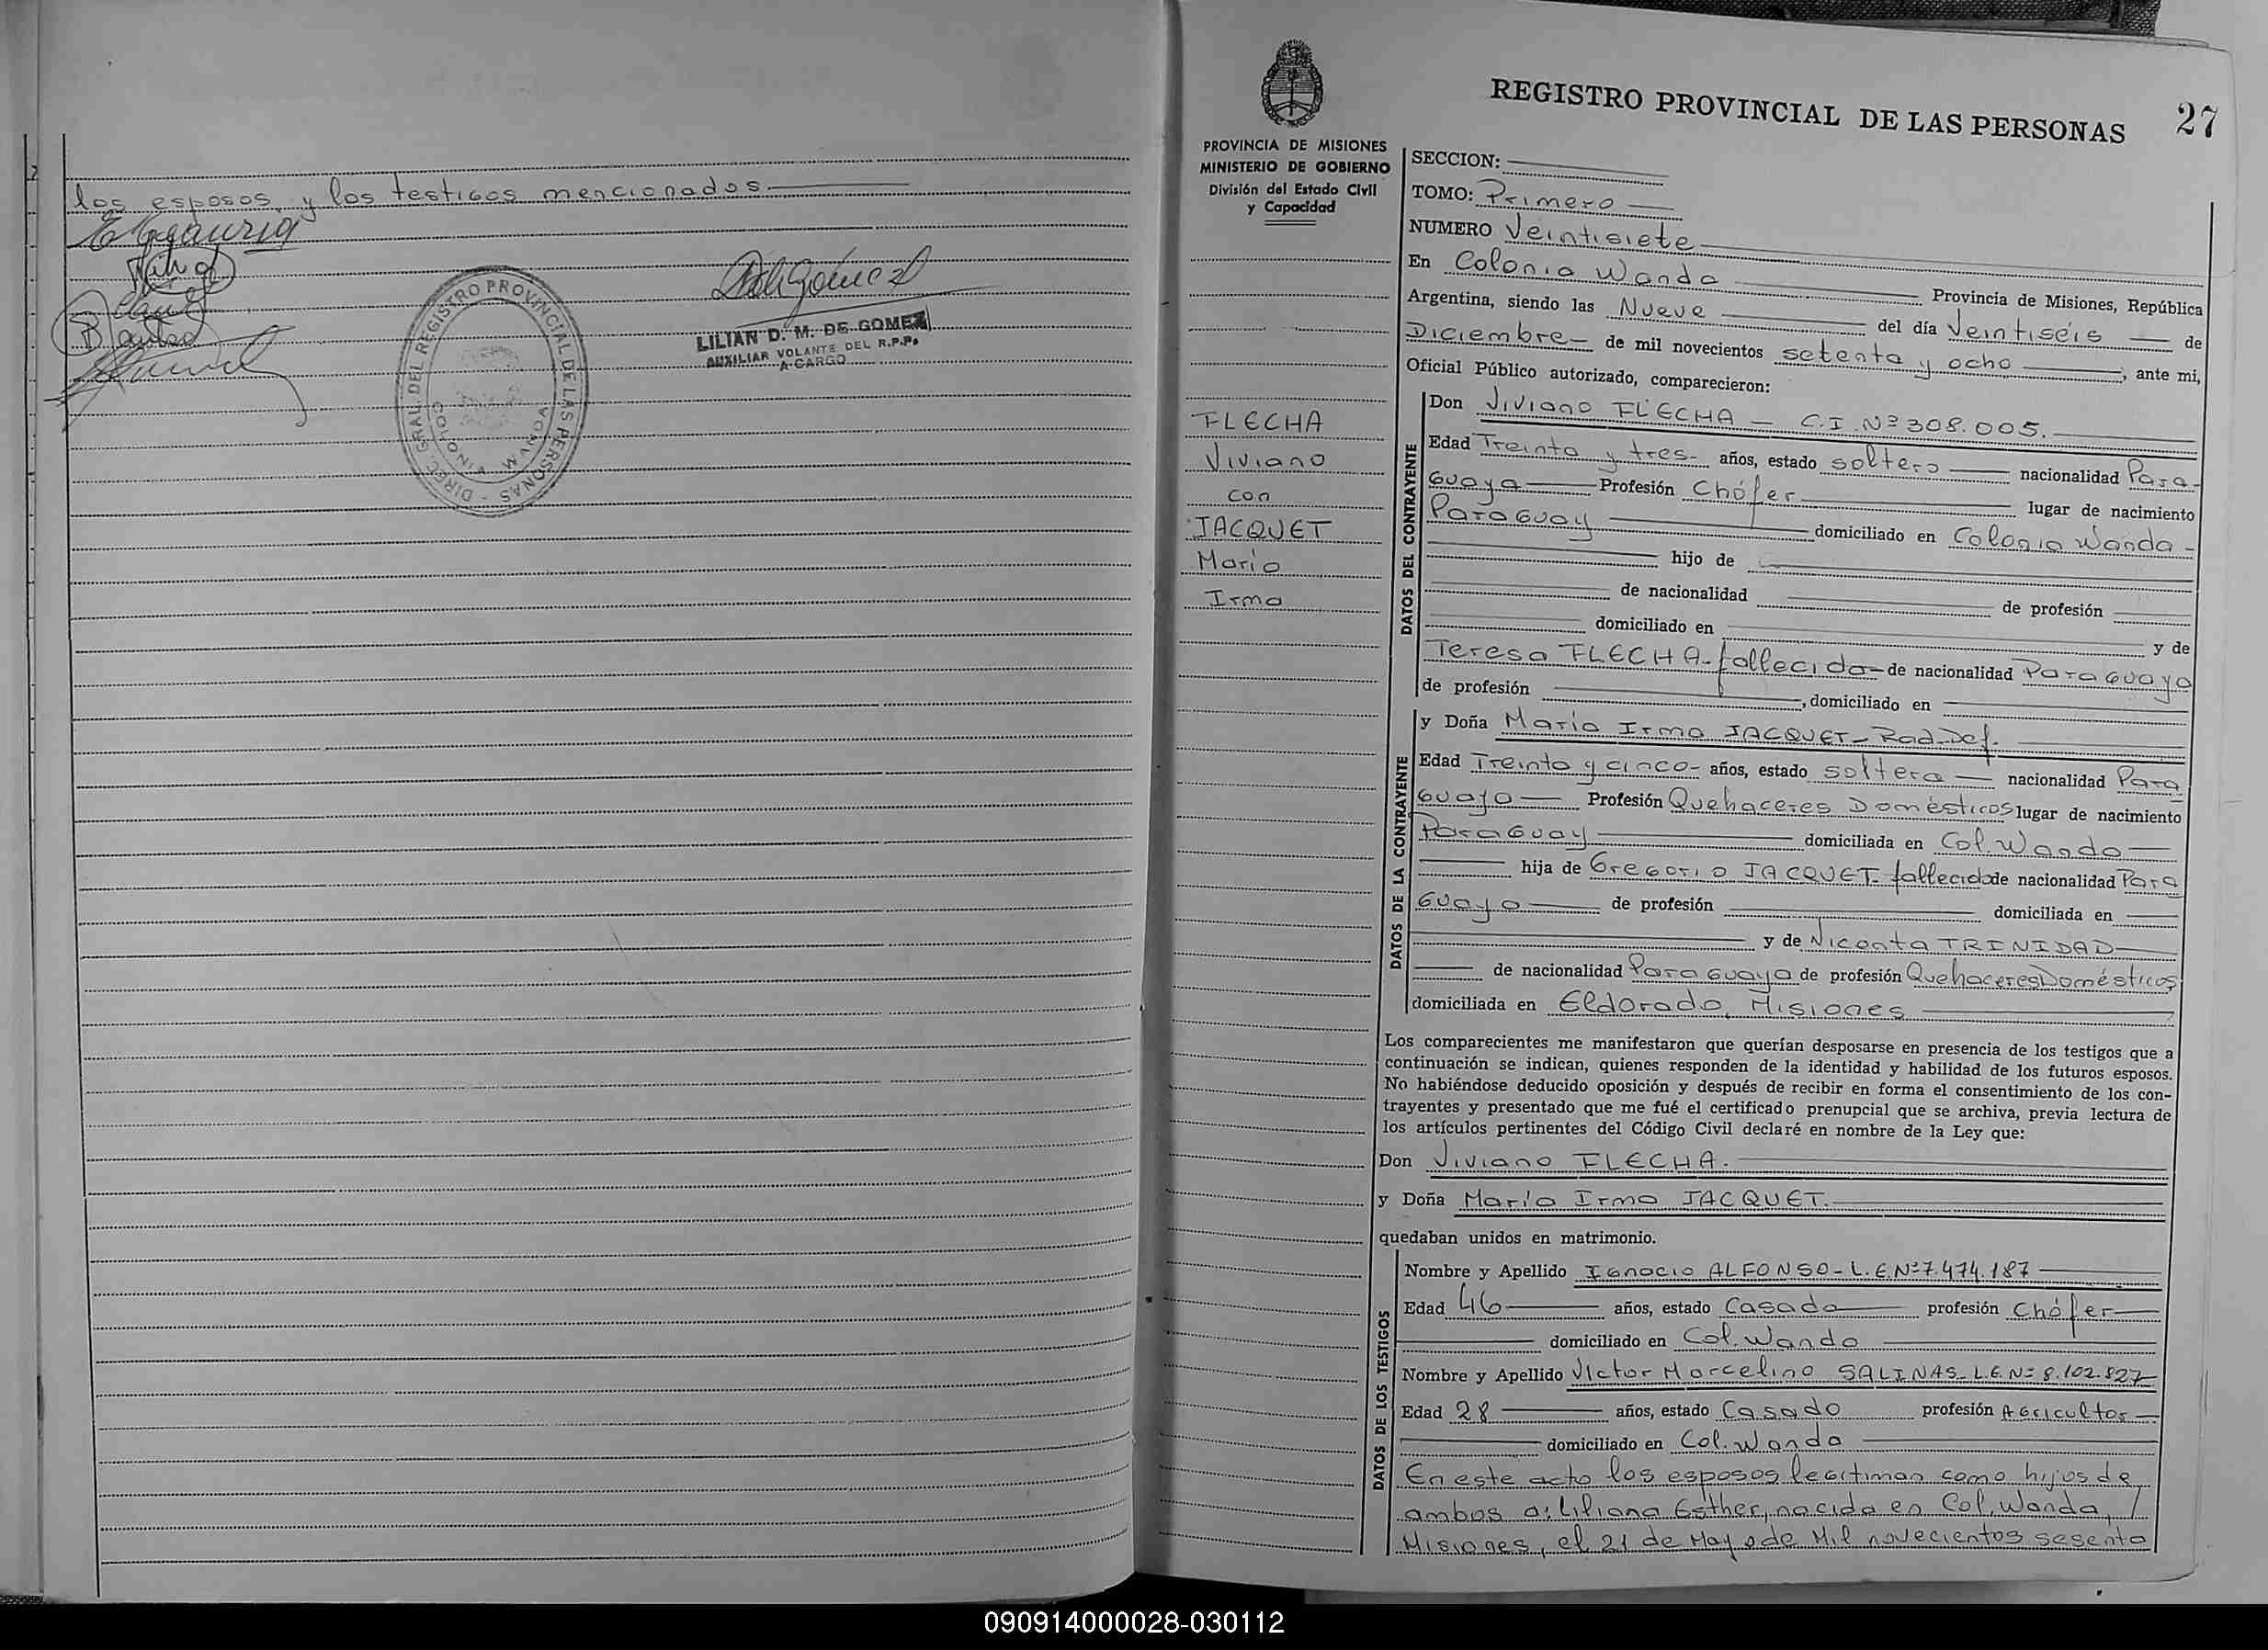 los esposos y los testigos mencionados.
LILIAN D. M. DE GOMEZ
AUXILIAR VOLANTE DEL R.P.P.
A CARGO
DIREC. GRAL. DEL REGISTRO PROVINCIAL DE LAS PERSONAS -
COLONIA WANDA
REGISTRO PROVINCIAL DE LAS PERSONAS 27
PROVINCIA DE MISIONES
MINISTERIO DE GOBIERNO
División del Estado Civil
y Capacidad
FLECHA
Viviano
con
JACQUET
María
Irma
SECCION:
TOMO: Primero
NUMERO Veintisiete
En Colonia Wanda Provincia de Misiones, República
Argentina, siendo las Nueve del día Veintiséis de
Diciembre de mil novecientos setenta y ocho, ante mi,
Oficial Público autorizado, comparecieron:
DATOS DEL CONTRAYENTE
Don Viviano FLECHA - C.I. Nº 308.005.
Edad Treinta y tres- años, estado soltero nacionalidad Para-
guaya Profesión Chófer lugar de nacimiento
Paraguay domiciliado en Colonia Wanda -
hijo de
de nacionalidad de profesión
domiciliado en y de
Teresa FLECHA-fallecida- de nacionalidad Paraguaya
de profesión , domiciliado en
DATOS DE LA CONTRAYENTE
y Doña María Irma JACQUET - Rad.Def.
Edad Treinta y cinco- años, estado soltera nacionalidad Para
guaya Profesión Quehaceres Domésticos lugar de nacimiento
Paraguay domiciliada en Col. Wanda
hija de Gregorio JACQUET- fallecido de nacionalidad Para
guaya de profesión domiciliada en
y de Nicanta TRINIDAD
de nacionalidad Paraguaya de profesión Quehaceres Domésticos
domiciliada en Eldorado, Misiones
Los comparecientes me manifestaron que querían desposarse en presencia de los testigos que a
continuación se indican, quienes responden de la identidad y habilidad de los futuros esposos.
No habiéndose deducido oposición y después de recibir en forma el consentimiento de los con-
trayentes y presentado que me fué el certificado prenupcial que se archiva, previa lectura de
los artículos pertinentes del Código Civil declaré en nombre de la Ley que:
Don Viviano FLECHA.
y Doña María Irma JACQUET.
quedaban unidos en matrimonio.
DATOS DE LOS TESTIGOS
Nombre y Apellido Ignacio ALFONSO - L.E.Nº 7.474.187
Edad 46 años, estado Casado profesión Chófer
domiciliado en Col. Wanda
Nombre y Apellido Victor Marcelino SALINAS - L.E.Nº 8.102.827
Edad 28 años, estado Casado profesión Agricultor
domiciliado en Col. Wanda
En este acto los esposos legitiman como hijos de
ambos a: Liliana Esther, nacida en Col. Wanda, /
Misiones, el 21 de Mayo de Mil novecientos sesenta
090914000028-030112